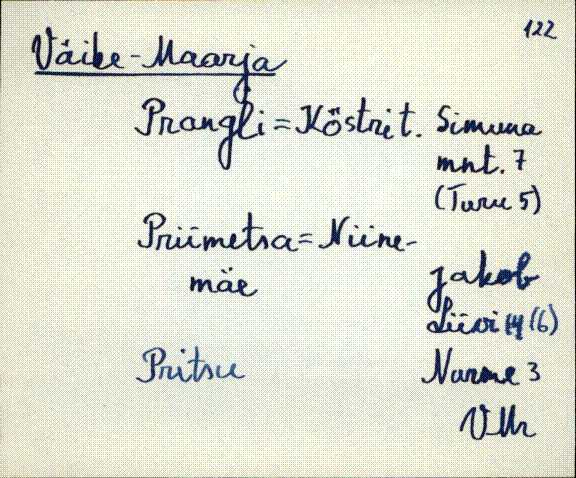 122
Väike-Maarja
Prangli = Köstrit. Simuna
mnt. 7
(Turu 5)
Priimetsa = Niine-
mäe Jakob
Liivi 14 (6)
Pritsu Nurme 3
VMr